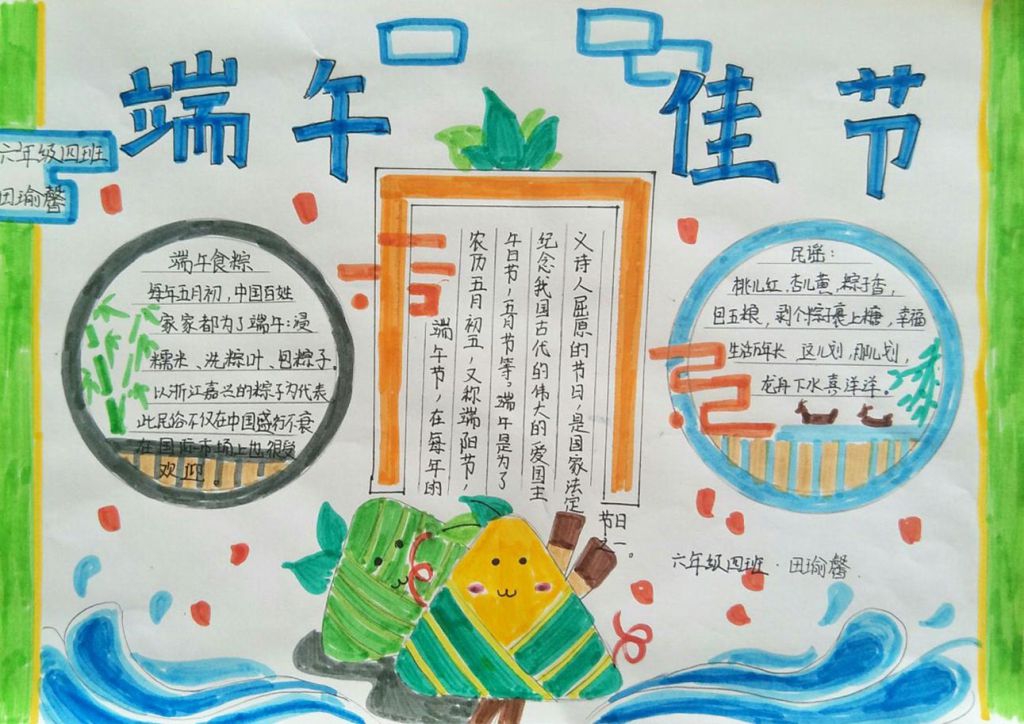 端午佳节
六年级四班
田瑜馨
端午食粽
每年五月初,中国百姓
家家都为了端午:浸
糯米、洗粽叶、包粽子.
以浙江嘉兴的粽子为代表
此民俗不仅在中国盛行不衰
在国际市场上也很受
欢迎。
端午节,在每年的
农历五月初五,又称端阳节,
午日节,五月节等。端午是为了
纪念我国古代的伟大的爱国主
义诗人屈原的节日,是国家法定
节日
之一。
民谣:
桃儿红,杏儿黄,粽子香,
包五娘,剥个粽子裹上糖,幸福
生活万年长 这儿划,那儿划,
龙舟下水喜洋洋.
六年级四班·田瑜馨